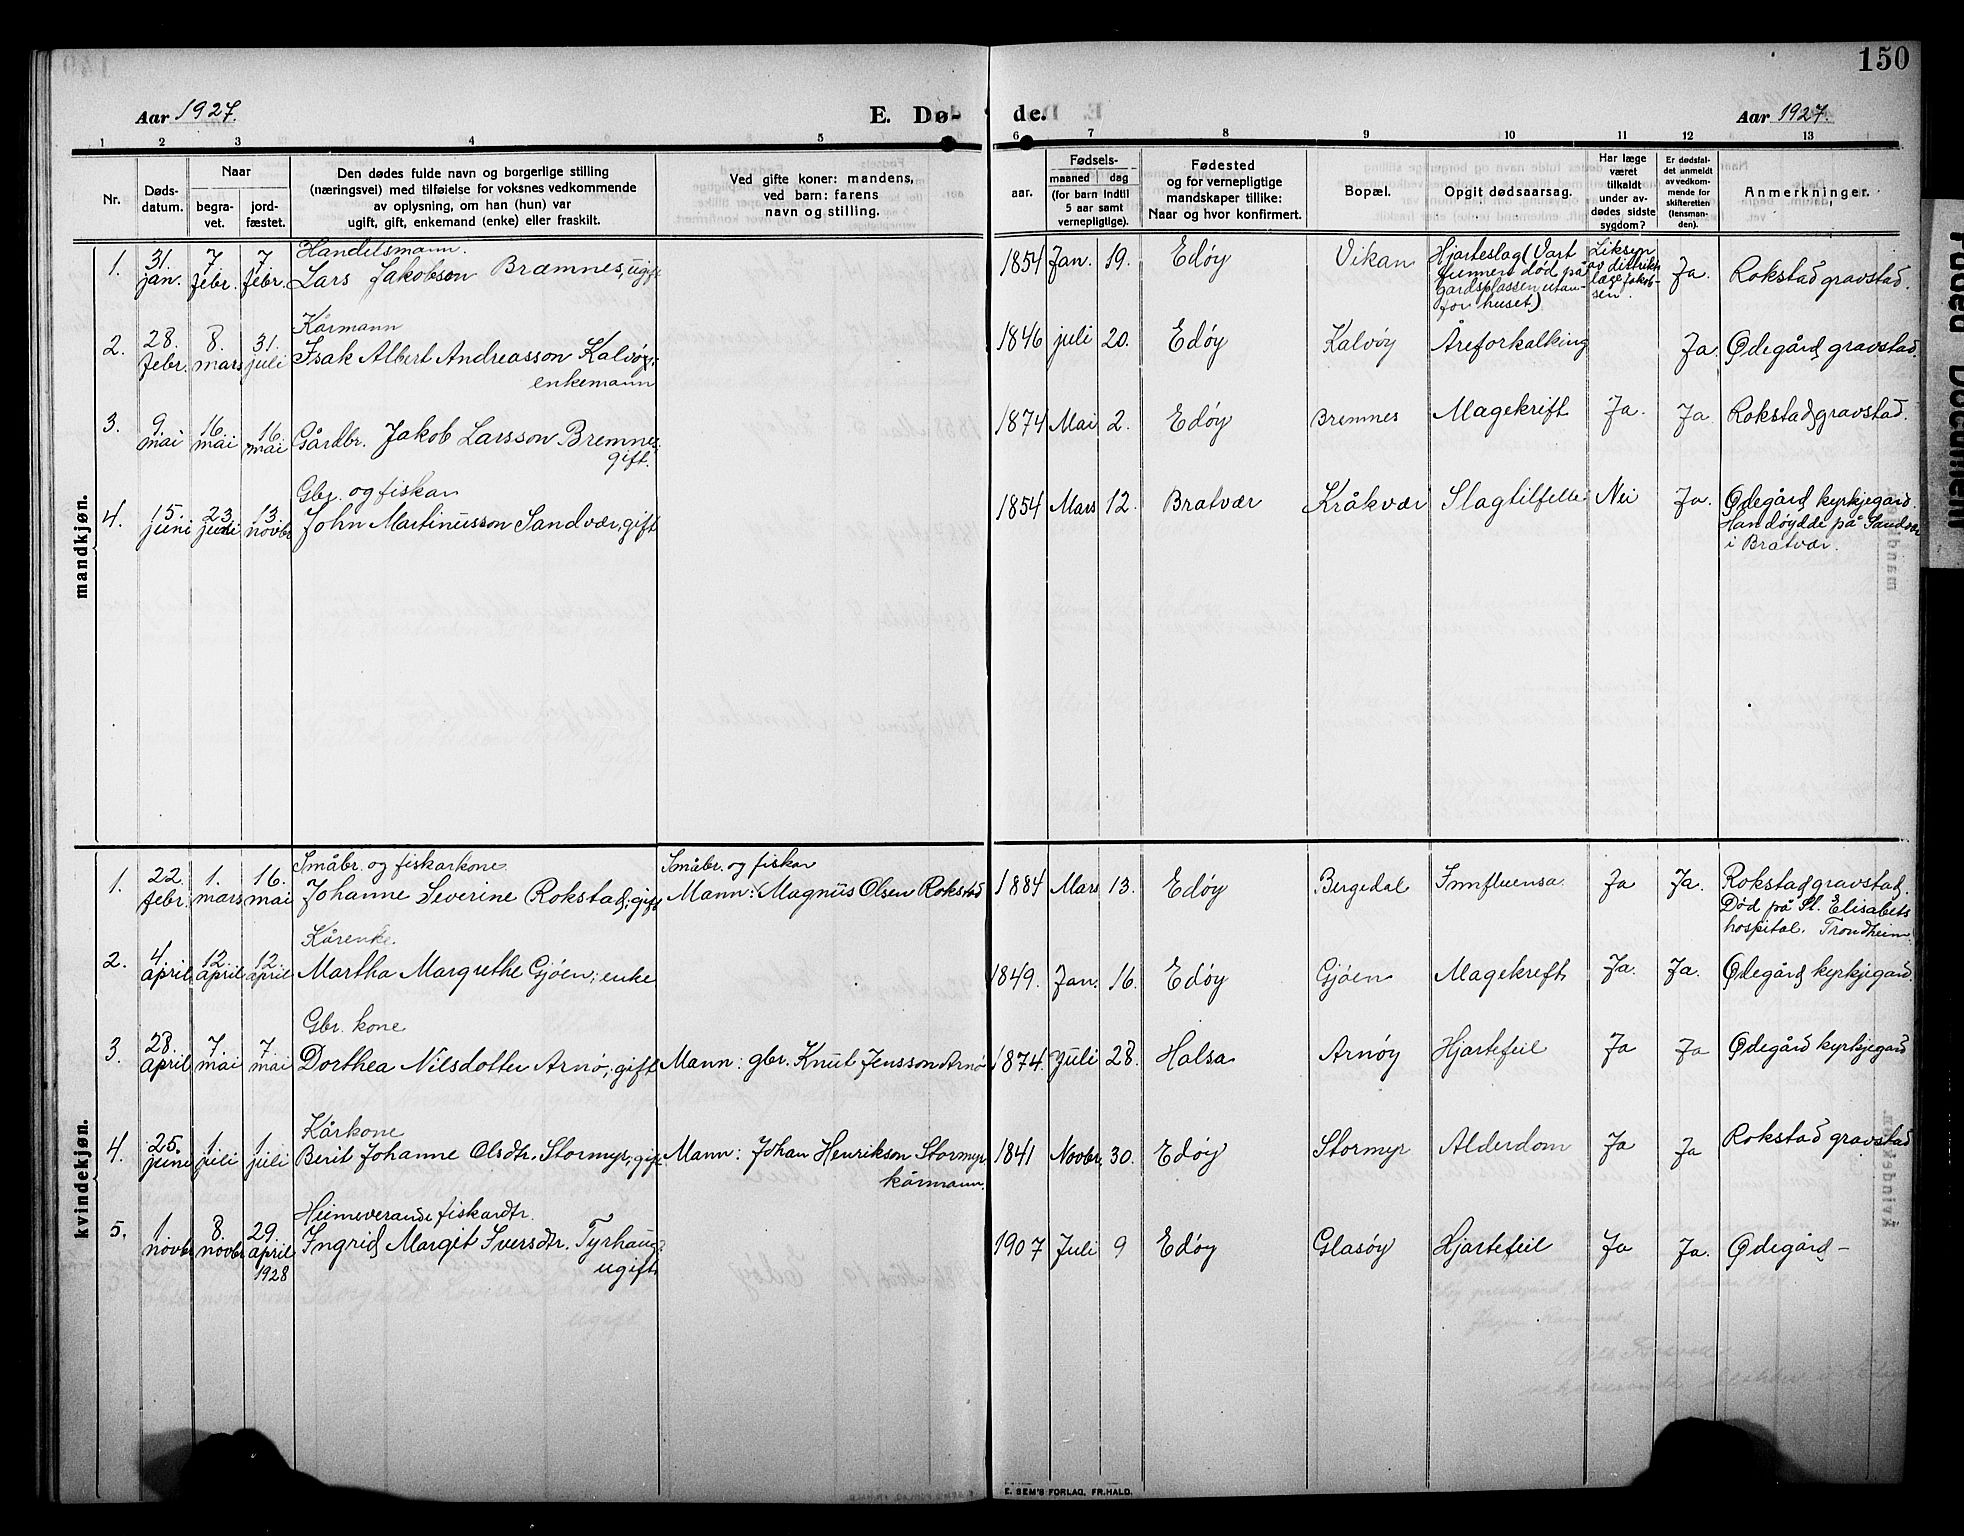 150
Aar 1927.
E. Dø-
de.
Aar 1927.
1 2 3 4 5 6 7 8 9 10 11 12 13
Nr.
Døds-
datum.
Naar
begra-
vet.
jord-
fæstet.
Den dødes fulde navn og borgerlige stilling
(næringsvei) med tilføielse for voksnes vedkommende
av oplysning, om han (hun) var
ugift, gift, enkemand (enke) eller fraskilt.
Ved gifte koner: mandens,
ved barn: farens
navn og stilling.
Fødsels-
aar.
maaned
dag
(for barn indtil
5 aar samt
vernepligtige).
Fødested
og for vernepligtige
mandskaper tillike:
Naar og hvor konfirmert.
Bopæl.
Opgit dødsaarsag.
Har læge
været
tilkaldt
under av-
dødes sidste
sygdom?
Er dødsfal-
det anmeldt
av vedkom-
mende for
skifteretten
(lensman-
den).
Anmerkninger.
mandkjøn.
Handelsmann.
1. 31. jan. 7 febr. 7 febr. Lars Jakobson Bræmnes, ugift
1854 Jan. 19. Edöy Vikan
Hjarteslag (Vart
funnen död på
gardsplassen utan-
for huset)
Liksyn
av distrikts
læge Jakob-
sen.
Ja. Rokstad gravstad.
Kårmann
2. 28. febr. 8. mars 31. juli Isak Albert Andreasson Kalvöy;
enkemann
1846 juli 20. Edöy Kalvöy Åreforkalking Ja. Ødegård gravstad.
3. 9. mai 16. mai 16. mai Gårdbr. Jakob Larsson Bremnes;
gift.
1874 Mai 2. Edöy Bremnes Magekreft Ja. Ja Rokstad gravstad.
Gbr. og fiskar
4. 15. juni 23. juni 13. novbr John Martinusson Sandvær, gift
1854 Mars 12. Bratvær Kråkvær Slagtilfelle Nei Ja. Ødegård kyrkjegard.
Han döydde på Sandvær
i Bratvær.
kvindekjøn.
Småbr. og fiskarkone
Småbr. og fiskar
1. 22. febr. 1. mars 16. mai Johanne Severine Rokstad; gift Mann: Magnus Olsen Rokstad
1884 Mars 13. Edöy Bergedal Innfluensa Ja Ja. Rokstad gravstad.
Död på St. Elisabets
hospital, Trondheim.
Kårenke.
2. 4. april 12. april 12. april Martha Margrethe Gjöen; enke
1849. Jan. 16. Edöy Gjöen Magekreft Ja. Ja. Ødegård kyrkjegard.
Gbr. kone
3. 28. april 7 mai 7 mai Dorthea Nilsdotter Arnö; gift Mann: gbr. Knut Jensson Arnö
1874. Juli 28. Halsa Arnöy Hjartefeil Ja Ja Ødegård kyrkjegard
Kårkone
4. 25. juni 1. juli 1 juli Berit Johanne Olsdtr. Stormyr; gift Mann: Johan Henrikson Stormyr
kårmann.
1841 Novbr. 30. Edöy Stormyr Alderdom Ja Ja Rokstad gravstad
Heimeverande fiskardtr.
5. 1 novbr 8. novbr 29. april 1928 Ingrid Margit Iversdtr. Tyrhaug;
ugift
1907 Juli 9 Edöy Glasöy Hjartefeil Ja Ja. Ødegård —
E. SEM'S FORLAG, FR.HALD.
Faded Document